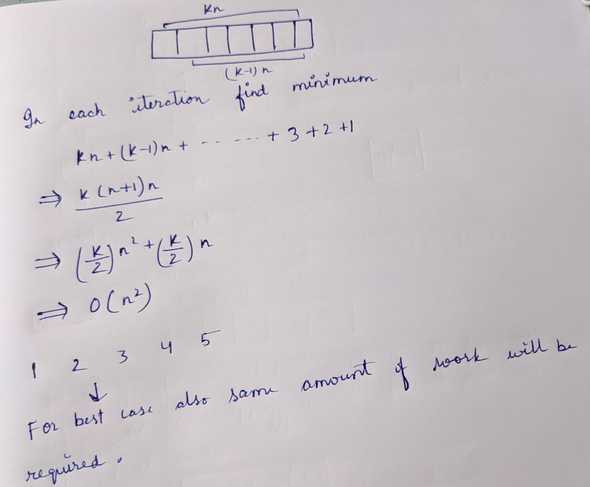 kn
(k-1)n
In each iteration find minimum
kn + (k-1)n + ........ + 3 + 2 + 1
⇒ k(n+1)n / 2
⇒ (k/2) n² + (k/2) n
⇒ O(n²)
1 2 3 4 5
↓
For best case also same amount of work will be
required.